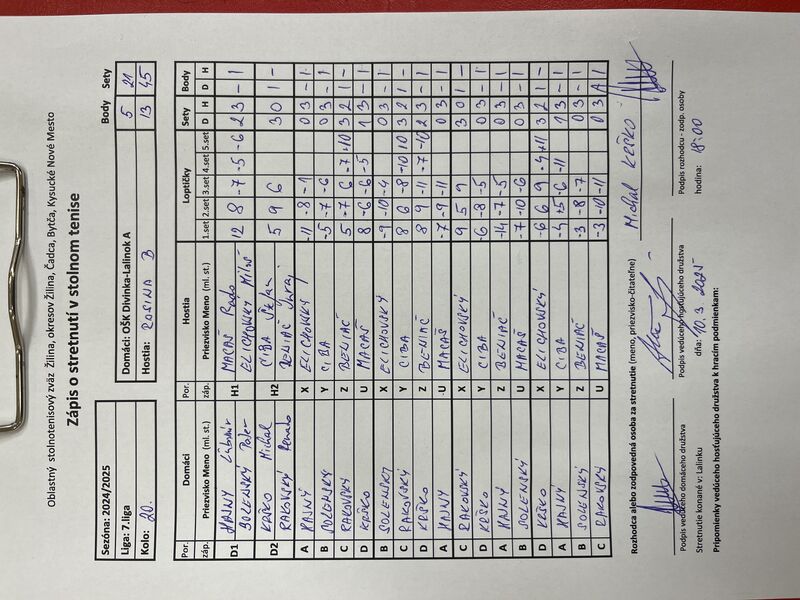 Oblastný stolnotenisový zväz Žilina, okresov Žilina, Čadca, Bytča, Kysucké Nové Mesto
Zápis o stretnutí v stolnom tenise
Sezóna: 2024/2025
Liga: 7.liga
Kolo: 20.
Body Sety
Domáci: OŠK Divinka-Lalinok A 5 21
Hostia: ROSINA B 13 45
Por. Domáci Por. Hostia Loptičky Sety Body
záp. Priezvisko Meno (ml. st.) záp. Priezvisko Meno (ml. st.) 1.set 2.set 3.set 4.set 5.set D H D H
D1 HAJNÝ Ľubomír H1 MACAŠ Rado 12 8 -7 -5 -6 2 3 - 1
SOLENSKÝ Peter ELICHOVSKÝ Miloš
D2 KRŠKO Michal H2 CIBA Štefan 5 9 6 3 0 1 -
RAKOVSKÝ Renato BENIAČ Juraj
A HAJNÝ X ELICHOVSKÝ -11 -8 -1 0 3 - 1
B SOLENSKÝ Y CIBA -5 -7 -6 0 3 - 1
C RAKOVSKÝ Z BENIAČ 5 -7 6 -7 +10 3 2 1 -
D KRŠKO U MACAŠ 8 -6 -6 -5 1 3 - 1
B SOLENSKÝ X ELICHOVSKÝ -9 -10 -4 0 3 - 1
C RAKOVSKÝ Y CIBA 8 6 -8 -10 10 3 2 1 -
D KRŠKO Z BENIAČ 8 9 -11 -7 -10 2 3 - 1
A HAJNÝ U MACAŠ -7 -9 -11 0 3 - 1
C RAKOVSKÝ X ELICHOVSKÝ 9 5 9 3 0 1 -
D KRŠKO Y CIBA -6 -8 -5 0 3 - 1
A HAJNÝ Z BENIAČ -14 -7 -5 0 3 - 1
B SOLENSKÝ U MACAŠ -7 -10 -6 0 3 - 1
D KRŠKO X ELICHOVSKÝ -6 6 9 -4 +11 3 2 1 -
A HAJNÝ Y CIBA -4 +5 -6 -11 1 3 - 1
B SOLENSKÝ Z BENIAČ -3 -8 -7 0 3 - 1
C RAKOVSKÝ U MACAŠ -3 -10 -11 0 3 1
Rozhodca alebo zodpovedná osoba za stretnutie (meno, priezvisko-čitateľne) Michal KRŠKO
Podpis vedúceho domáceho družstva Podpis vedúceho hosťujúceho družstva Podpis rozhodcu - zodp. osoby
Stretnutie konané v: Lalinku dňa: 10.3.2025 hodina: 18:00
Pripomienky vedúceho hosťujúceho družstva k hracím podmienkam: